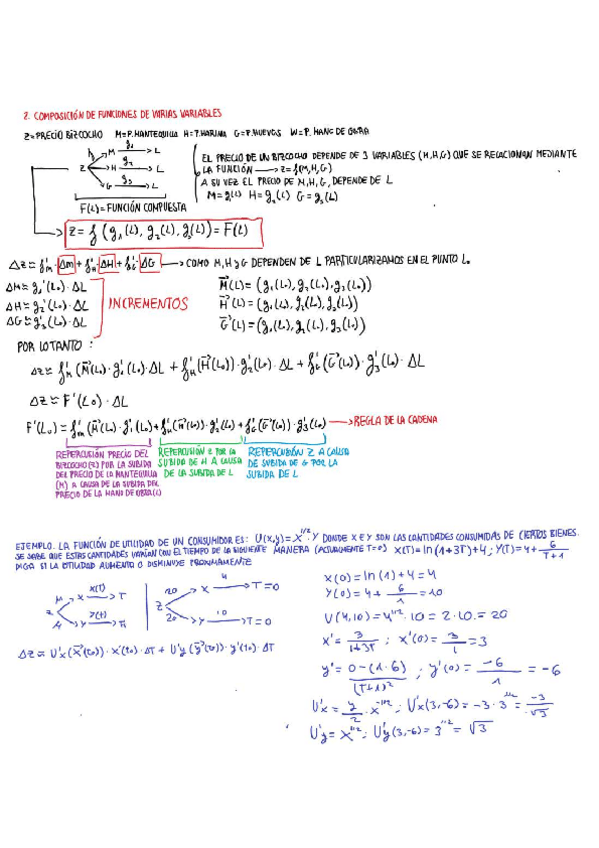 2. COMPOSICIÓN DE FUNCIONES DE VARIAS VARIABLES
Z=PRECIO BIZCOCHO M=P.MANTEQUILLA H=P.HARINA G=P.HUEVOS W=P. MANO DE OBRA
Z M g₁ L
H g₂ L
G g₃ L
F(L)=FUNCIÓN COMPUESTA
EL PRECIO DE UN BIZCOCHO DEPENDE DE 3 VARIABLES (M,H,G) QUE SE RELACIONAN MEDIANTE
LA FUNCIÓN → Z=f(M,H,G)
A SU VEZ EL PRECIO DE M,H,G, DEPENDE DE L
M=g(L) H=g₂(L) G=g₃(L)
Z=f(g₁(L), g₂(L), g₃(L))=F(L)
ΔZ≈f'M·ΔM+f'H·ΔH+f'G·ΔG → COMO M,H y G DEPENDEN DE L PARTICULARIZAMOS EN EL PUNTO L₀
ΔM≈g₁'(L₀)·ΔL
ΔH≈g₂'(L₀)·ΔL
ΔG≈g₃'(L₀)·ΔL
INCREMENTOS
M⃗(L)=(g₁(L₀),g₂(L₀),g₃(L₀))
H⃗(L)=(g₁(L₀),g₂(L₀),g₃(L₀))
G⃗(L)=(g₁(L₀),g₂(L₀),g₃(L₀))
POR LO TANTO :
ΔZ≈f'M(M⃗(L₀)·g₁'(L₀)·ΔL + f'H(H⃗(L₀))·g₂'(L₀)·ΔL + f'G(G⃗(L₀))·g₃'(L₀)·ΔL
ΔZ≈F'(L₀)·ΔL
F'(L₀)=f'M(M⃗(L₀)·g₁'(L₀)+f'H(H⃗(L₀))·g₂'(L₀)+f'G(G⃗(L₀))·g₃'(L₀) → REGLA DE LA CADENA
REPERCUSIÓN PRECIO DEL
BIZCOCHO(Z) POR LA SUBIDA
DEL PRECIO DE LA MANTEQUILLA
(M) A CAUSA DE LA SUBIDA DEL
PRECIO DE LA MANO DE OBRA(L)
REPERCUSIÓN Z POR LA
SUBIDA DE H A CAUSA
DE LA SUBIDA DE L
REPERCUSIÓN Z A CAUSA
DE SUBIDA DE G POR LA
SUBIDA DE L
EJEMPLO. LA FUNCIÓN DE UTILIDAD DE UN CONSUMIDOR ES: U(x,y)=X^1/2·Y DONDE X E Y SON LAS CANTIDADES CONSUMIDAS DE CIERTOS BIENES.
SE SABE QUE ESTAS CANTIDADES VARÍAN CON EL TIEMPO DE LA SIGUIENTE MANERA (ACTUALMENTE T=0) X(T)=ln(1+3T)+4; Y(T)=4+6/(T+1)
DIGA SI LA UTILIDAD AUMENTA O DISMINUYE PRÓXIMAMENTE
X X(T) T
Y Y(t)
Z 20 X 4 T=0
20 Y 10 T=0
ΔZ≈U'x(X⃗(t₀))·X'(t₀)·ΔT + U'y(y⃗(t₀))·y'(t₀)·ΔT
X(0)=ln(1)+4=4
Y(0)=4+6/1=10
U(4,10)=4^1/2·10=2·10=20
X'=3/(1+3T); X'(0)=3/1=3
y'=0-(1·6)/(T+1)²; y'(0)=-6/1=-6
U'x=y/2·x^-1/2; U'x(3,-6)=-3·3^-1/2=-3/√3
U'y=X^1/2; U'y(3,-6)=3^1/2=√3